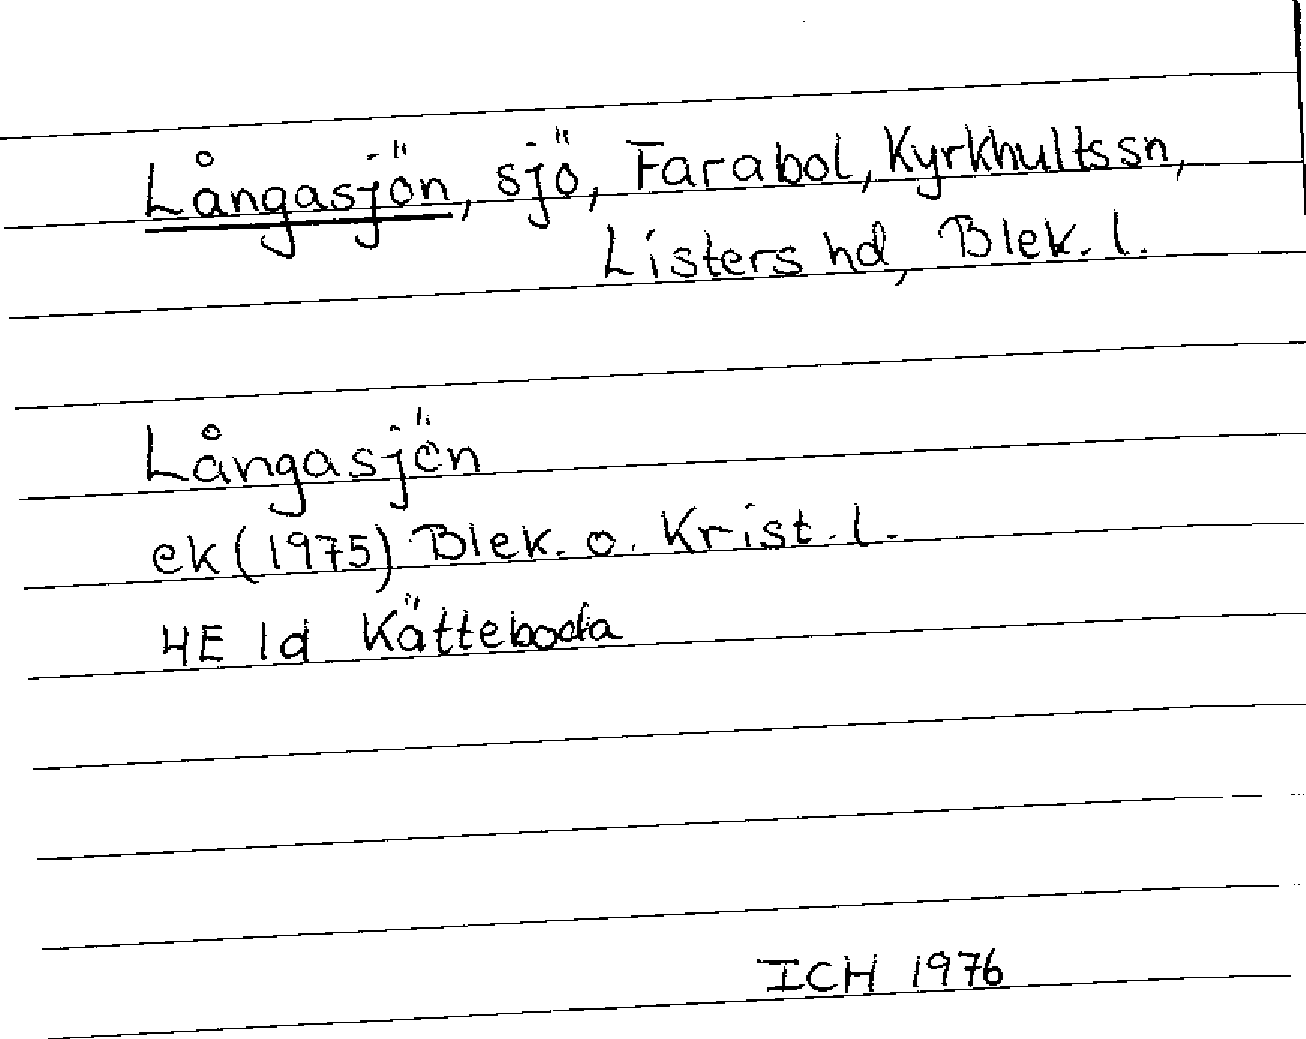 Långasjön, sjö, Farabol, Kyrkhultssn,
Listers hd, Blek. l.
Långasjön
ek (1975) Blek. o. Krist. l.
4E 1d Kätteboda
ICH 1976